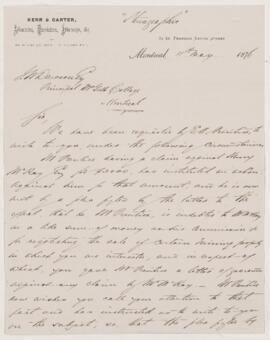 KERR & CARTER,
Advocates, Barristers, Attorneys, &c.
50 ST. FRANCOIS XAVIER STREET
Montreal 11th May 1876
J W Dawson Esq
Principal McGill College
Montreal
Sir,
We have been requested by E H Prentice, to
write to you under the following circumstances
Mr Prentice having a claim against Henry
McKay Esq for $2000, has instituted an action
against him for that amount, and he is now
met by a plea by the latter to the
effect that he Mr Prentice, is indebted to McKay
in a like sum of money as the Commission
for negotiating the sale of certain mining property
in which you are interested, and in respect of
which, you gave Mr Prentice a letter of guarantee
against any claim by Mr McKay — Mr Prentice
now wishes you call your attention to that
fact and has instructed us to write to you
on the subject, so that the plea by